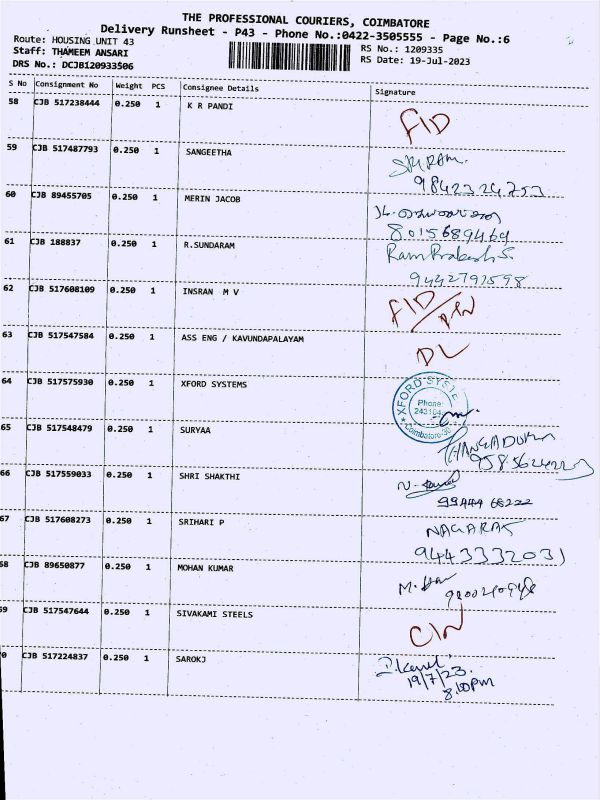 THE PROFESSIONAL COURIERS, COIMBATORE
Delivery Runsheet - P43 - Phone No.:0422-3505555 - Page No.:6
Route: HOUSING UNIT 43
RS No.: 1209335
Staff: THAMEEM ANSARI
RS Date: 19-Jul-2023
DRS No.: DCJB120933506
S No Consignment No Weight PCS Consignee Details Signature
58 CJB 517238444 0.250 1 K R PANDI
FID
59 CJB 517487793 0.250 1 SANGEETHA
SRI RAM.
9842324753
60 CJB 89455705 0.250 1 MERIN JACOB
8015689469
61 CJB 188837 0.250 1 R.SUNDARAM
Ram Prakash S.
9442791598
62 CJB 517608109 0.250 1 INSRAN M V
FID
63 CJB 517547584 0.250 1 ASS ENG / KAVUNDAPALAYAM
DL
64 CJB 517575930 0.250 1 XFORD SYSTEMS
XFORD SYSTE
Phone:
Coimbatore
65 CJB 517548479 0.250 1 SURYAA
THANGADURAI
66 CJB 517559033 0.250 1 SHRI SHAKTHI
99444 68222
67 CJB 517608273 0.250 1 SRIHARI P
NAGARAJ
9443332031
68 CJB 89650877 0.250 1 MOHAN KUMAR
69 CJB 517547644 0.250 1 SIVAKAMI STEELS
CIN
0 CJB 517224837 0.250 1 SAROKJ
19/7/23.
8.10pm